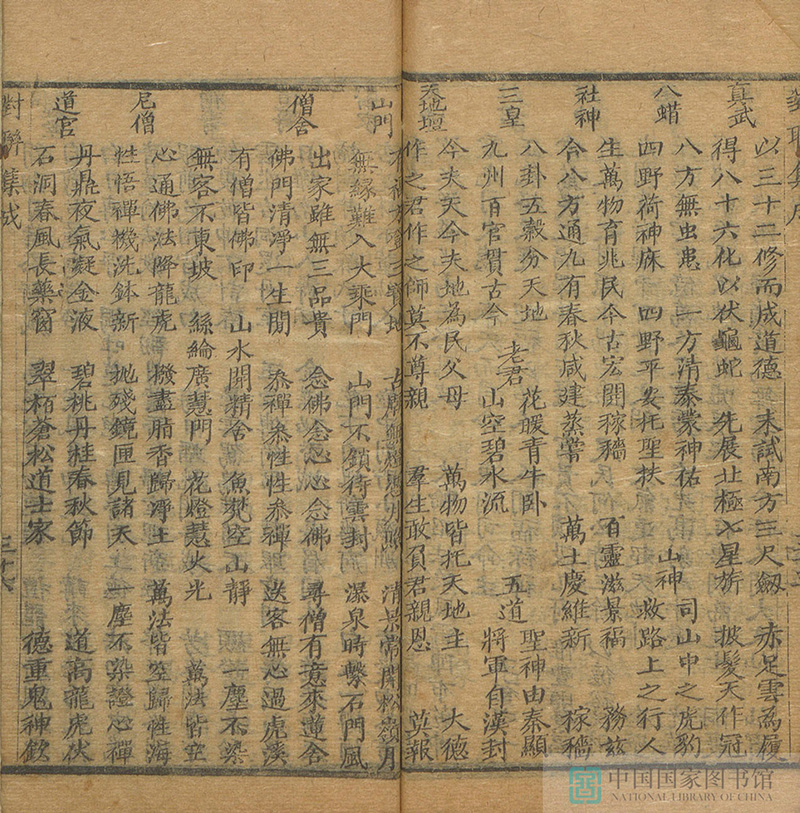 真武
以三十二修而成道德 末試南方三尺劔 赤足雲為履
得八十六化以伏龜蛇 先展北極七星旂 披髮天作冠
八蜡
八方無虫患 一方清泰蒙神佑 山神 司山中之虎豹
四野荷神庥 四野平安托聖扶 救路上之行人
社神
生萬物育兆民今古宏開稼穡 百靈滋景福 務茲
合八方通九有春秋咸建蒸嘗 萬土慶維新 稼穡
三皇
八卦五穀分天地 老君 花暖青牛卧 五道 聖神由秦顯
九州百官貫古今 山空碧水流 將軍自漢封
天地壇
今夫天今夫地為民父母 萬物皆托天地主 大德
作之君作之師莫不尊親 羣生敢負君親恩 英報
山門
方登三寶地 清景常開松嶺月
無緣難入大乘門 山門不鎖待雲封 瀑泉時繫石門風
僧舍
出家雖無三品貴 念佛念心心念佛 尋僧有意來蓮舍
佛門清淨一生閒 叅禪叅性性叅禪 送客無心過虎溪
有僧皆佛印 山水開精舍 魚梵空山靜 一塵不染
無客不東坡 絲綸廣慧門 花燈慧火光 萬法皆空
尼僧
心通佛法降龍虎 撥盡脂香歸淨土 萬法皆空歸性海
性悟禪機洗鉢新 拋殘鏡匣見諸天 一塵不染證心禪
道官
丹鼎夜氣凝金液 碧桃丹桂春秋節 道高龍虎伏
石洞春風長藥窗 翠栢蒼松道士家 德重鬼神欽
對聯集成 三十六
中国国家图书馆
NATIONAL LIBRARY OF CHINA